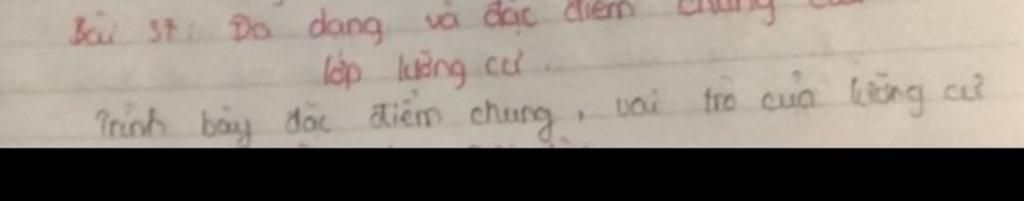 Bài 37: Đa dạng và đặc điểm chung của
lớp lưỡng cư.
Trình bày đặc điểm chung, vai trò của lưỡng cư